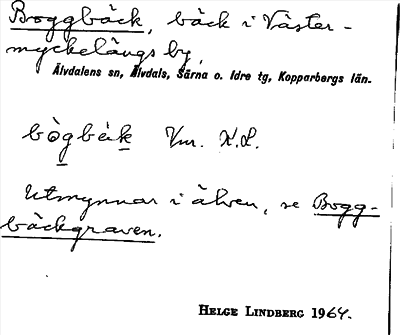 Boggbäck, bäck i Väster-
myckelängs by,
Älvdalens sn, Älvdals, Särna o. Idre tg, Kopparbergs län.
bògbèk Vm. K.L.
Utmynnar i älven, se Bogg-
bäckgraven.
HELGE LINDBERG 1964.